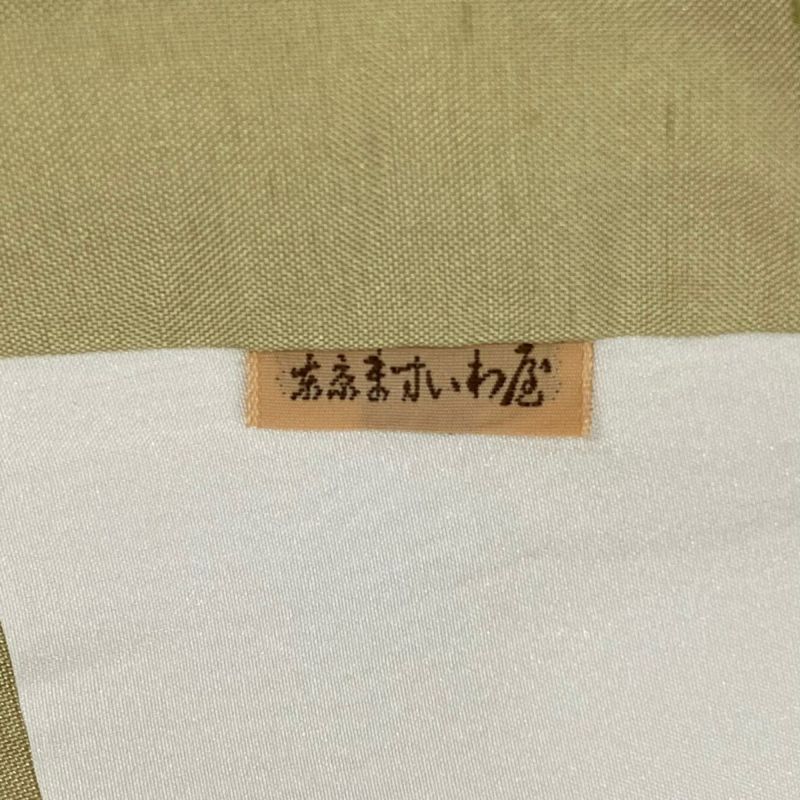 東京ますいわ屋